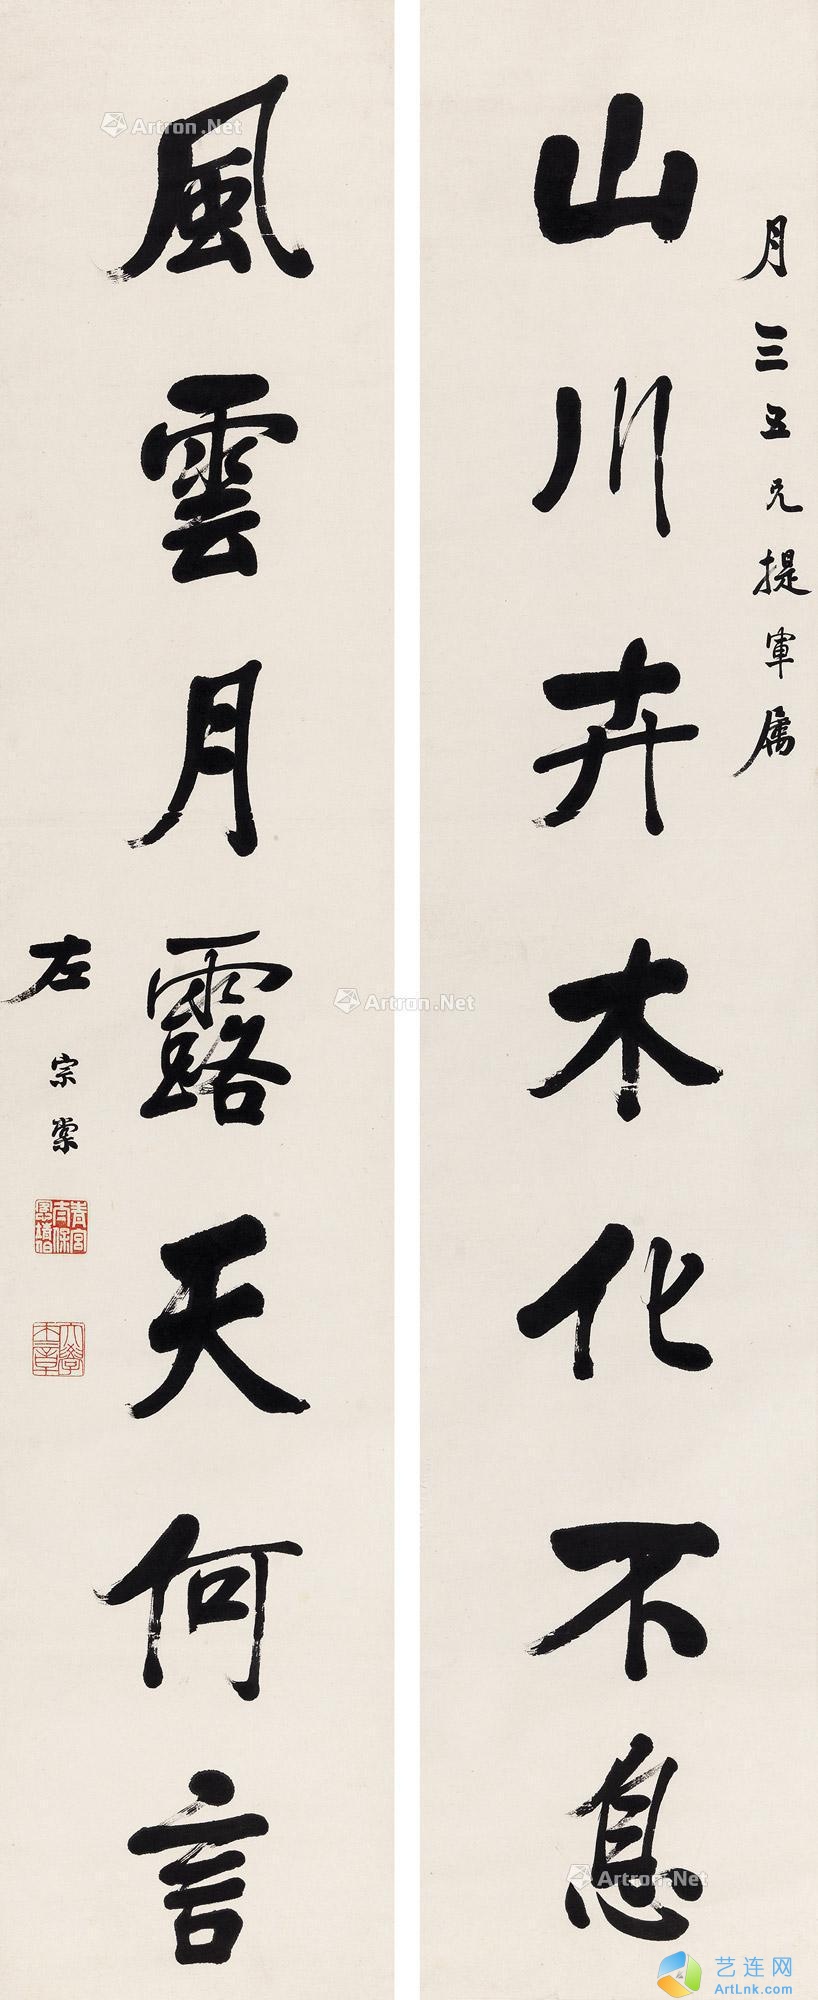 月三五兄提軍属
山川卉木化不息
風雲月露天何言
左宗棠
青宮太保恪靖侯
大學士章
Artron.Net
Artron.Net
Artron.Net
艺连网
ArtLnk.com